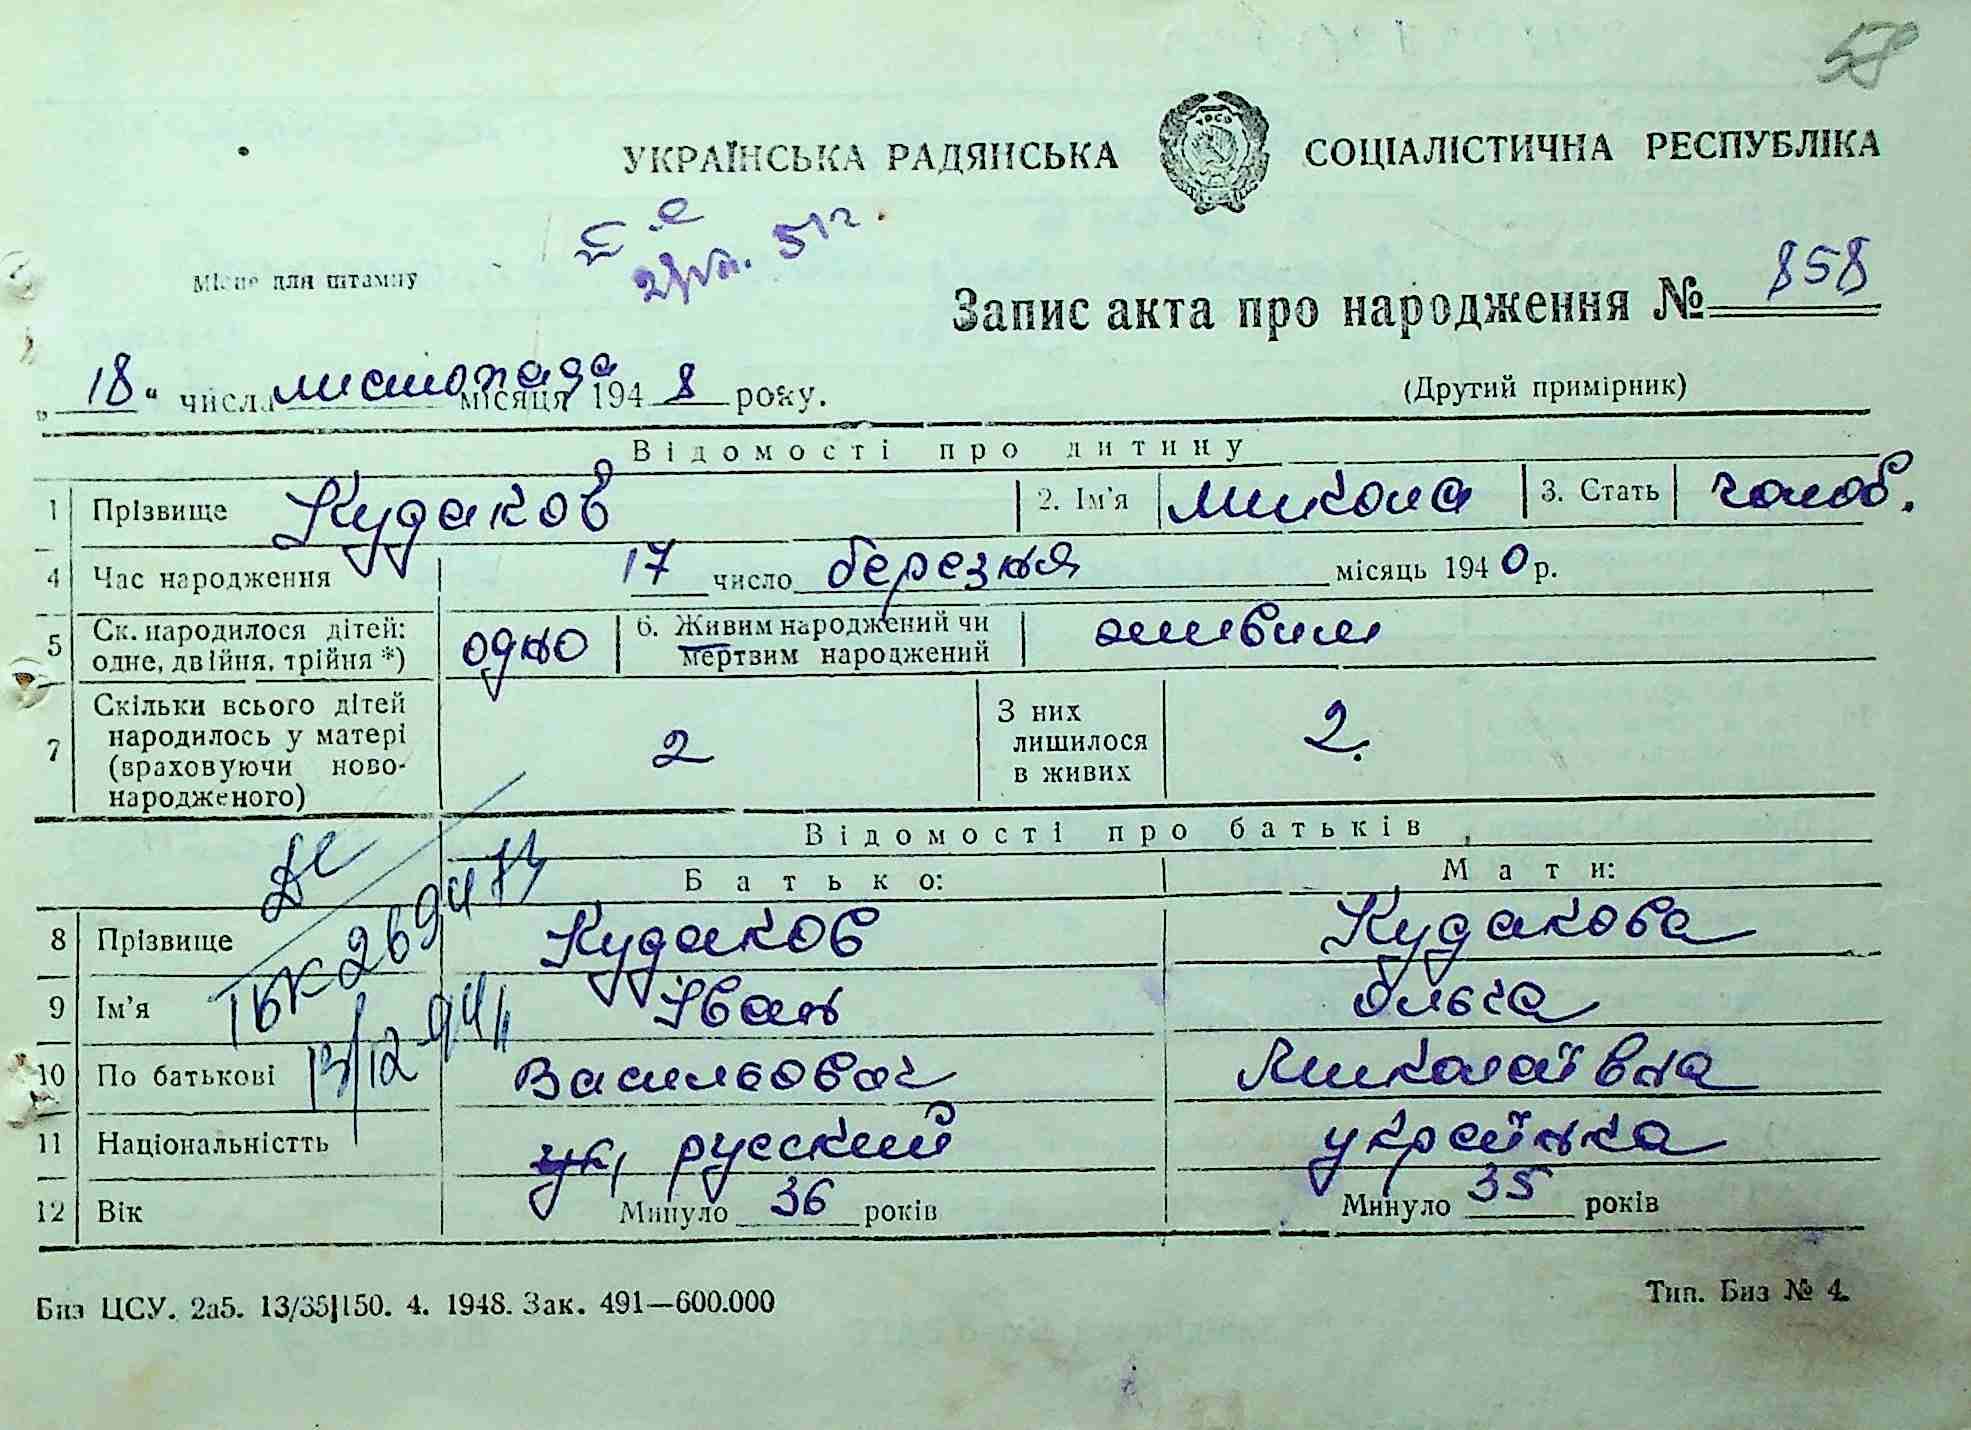 58
УКРАЇНСЬКА РАДЯНСЬКА СОЦІАЛІСТИЧНА РЕСПУБЛІКА
УРСР
51 г.
Місце для штампу
Запис акта про народження № 858
„18“ числа листопада місяця 1948 року.
(Другий примірник)
Відомості про дитину
1 Прізвище Кудаков 2. Ім'я Микола 3. Стать чолов.
4 Час народження 17 число березня місяць 1940 р.
5 Ск. народилося дітей: одно 6. Живим народжений чи живим
одне, двійня, трійня *) мертвим народжений
7 Скільки всього дітей 2 З них 2.
народилось у матері лишилося
(враховуючи ново- в живих
народженого)
Відомості про батьків
Батько: Мати:
8 Прізвище Кудаков Кудакова
9 Ім'я Іван Ольга
10 По батькові Васильович Миколаївна
11 Національністть ук, русский українка
12 Вік Минуло 36 років Минуло 35 років
Биз ЦСУ. 2а5. 13/35|150. 4. 1948. Зак. 491—600.000
Тип. Биз № 4.